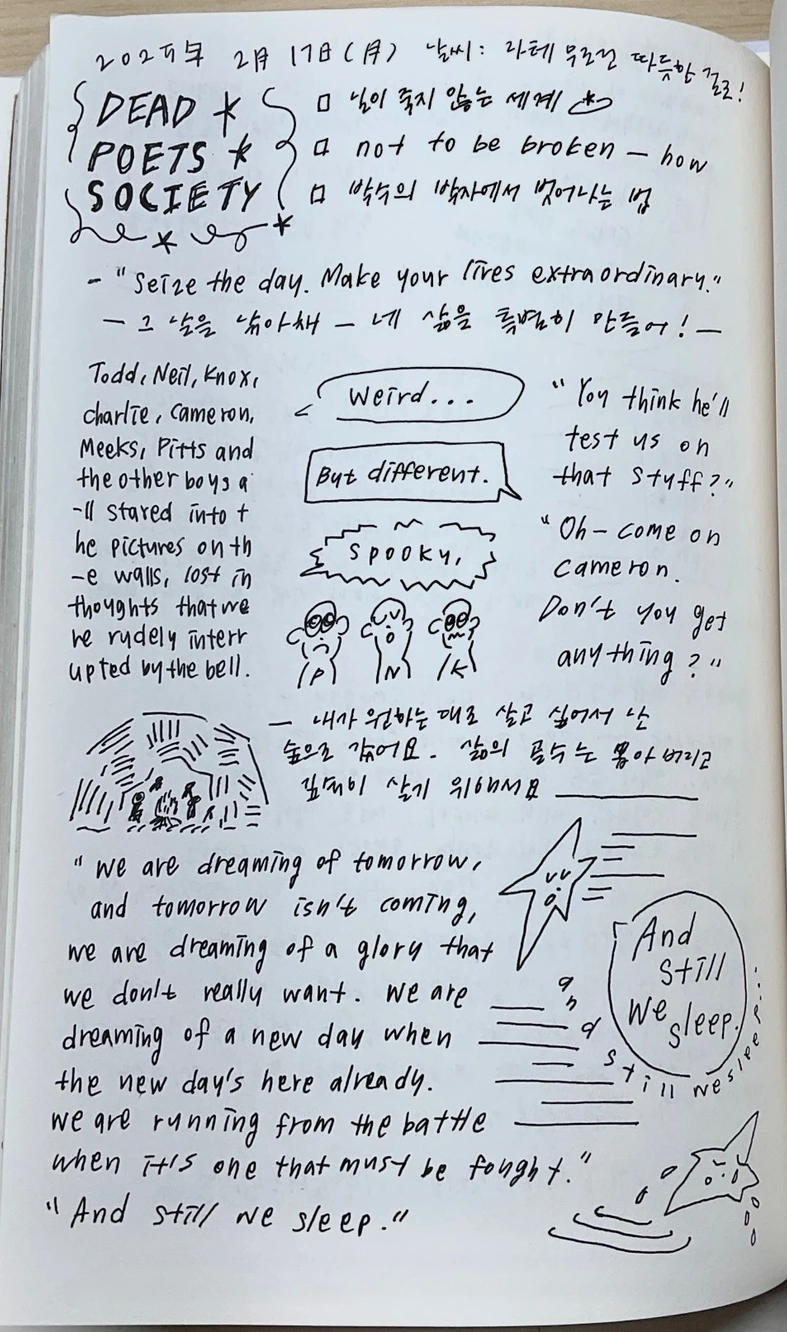 2025年 2月 17日(月) 날씨: 라테 무조건 따듯한 걸로!
DEAD
POETS
SOCIETY
□ 닐이 죽지 않는 세계
□ not to be broken — how
□ 박수의 박자에서 벗어나는 법
- "Seize the day. Make your lives extraordinary."
— 그 날을 낚아채 — 네 삶을 특별히 만들어! —
Todd, Neil, Knox,
Charlie, Cameron,
Meeks, Pitts and
the other boys a
-ll stared into t
he pictures on th
-e walls, lost in
thoughts that we
re rudely interr
upted by the bell.
Weird...
But different.
Spooky,
P
N
K
"You think he'll
test us on
that stuff?"
"Oh- come on
Cameron.
Don't you get
anything?"
— 내가 원하는 대로 살고 싶어서 난
숲으로 갔어요. 삶의 골수는 뽑아 버리고
깊덕이 살기 위해서요
"We are dreaming of tomorrow,
and tomorrow isn't coming,
we are dreaming of a glory that
we don't really want. We are
dreaming of a new day when
the new day's here already.
We are running from the battle
when it's one that must be fought."
"And still we sleep."
And
still
we
sleep.
and still we sleep...